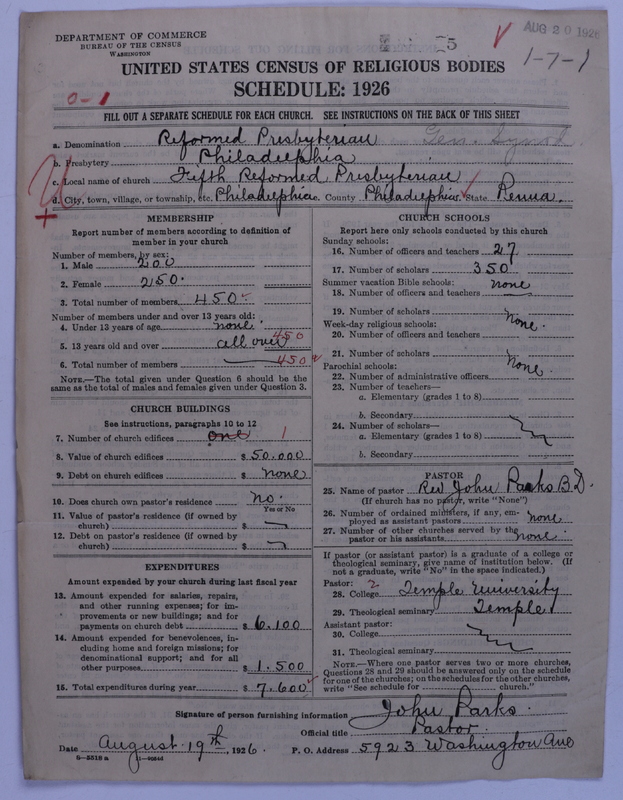 DEPARTMENT OF COMMERCE
BUREAU OF THE CENSUS
WASHINGTON
5
AUG 20 1926
1-7-1
UNITED STATES CENSUS OF RELIGIOUS BODIES
SCHEDULE: 1926
0-1
FILL OUT A SEPARATE SCHEDULE FOR EACH CHURCH. SEE INSTRUCTIONS ON THE BACK OF THIS SHEET
a. Denomination Reformed Presbyterian Gen. Synod
b. Presbytery Philadelphia
c. Local name of church Fifth Reformed Presbyterian
d. City, town, village, or township, etc. Philadelphia County Philadelphia State Penna.
MEMBERSHIP
Report number of members according to definition of
member in your church
Number of members, by sex:
1. Male 200
2. Female 250.
3. Total number of members 450
Number of members under and over 13 years old:
4. Under 13 years of age none.
5. 13 years old and over all over 450
6. Total number of members 450
NOTE.—The total given under Question 6 should be
the same as the total of males and females given under Question 3.
CHURCH BUILDINGS
See instructions, paragraphs 10 to 12
7. Number of church edifices one 1
8. Value of church edifices $ 50.000
9. Debt on church edifices $ none
10. Does church own pastor's residence No.
Yes or No
11. Value of pastor's residence (if owned by
church) $
12. Debt on pastor's residence (if owned by
church) $
EXPENDITURES
Amount expended by your church during last fiscal year
13. Amount expended for salaries, repairs,
and other running expenses; for im-
provements or new buildings; and for
payments on church debt $ 6.100
14. Amount expended for benevolences, in-
cluding home and foreign missions; for
denominational support; and for all
other purposes $ 1.500
15. Total expenditures during year $ 7.600
CHURCH SCHOOLS
Report here only schools conducted by this church
Sunday schools:
16. Number of officers and teachers 27
17. Number of scholars 350
Summer vacation Bible schools: none
18. Number of officers and teachers
19. Number of scholars
Week-day religious schools: None.
20. Number of officers and teachers
21. Number of scholars
Parochial schools: None
22. Number of administrative officers
23. Number of teachers—
a. Elementary (grades 1 to 8)
b. Secondary
24. Number of scholars—
a. Elementary (grades 1 to 8)
b. Secondary
PASTOR
25. Name of pastor Rev John Parks B.D.
(If church has no pastor, write "None")
26. Number of ordained ministers, if any, em-
ployed as assistant pastors none
27. Number of other churches served by the
pastor or his assistants none
If pastor (or assistant pastor) is a graduate of a college or
theological seminary, give name of institution below. (If
not a graduate, write "No" in the space indicated.)
Pastor: 2
28. College Temple University
29. Theological seminary Temple
Assistant pastor:
30. College
31. Theological seminary
NOTE.—Where one pastor serves two or more churches,
Questions 28 and 29 should be answered only on the schedule
for one of the churches; on the schedules for the other churches,
write "See schedule for church."
Signature of person furnishing information John Parks.
Official title Pastor
Date August 19th, 1926. P. O. Address 5923 Washington Ave